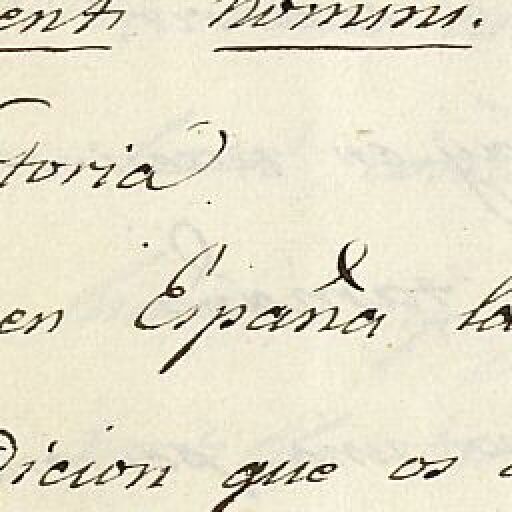 enti nomini.
toria
en España la
dicion que os